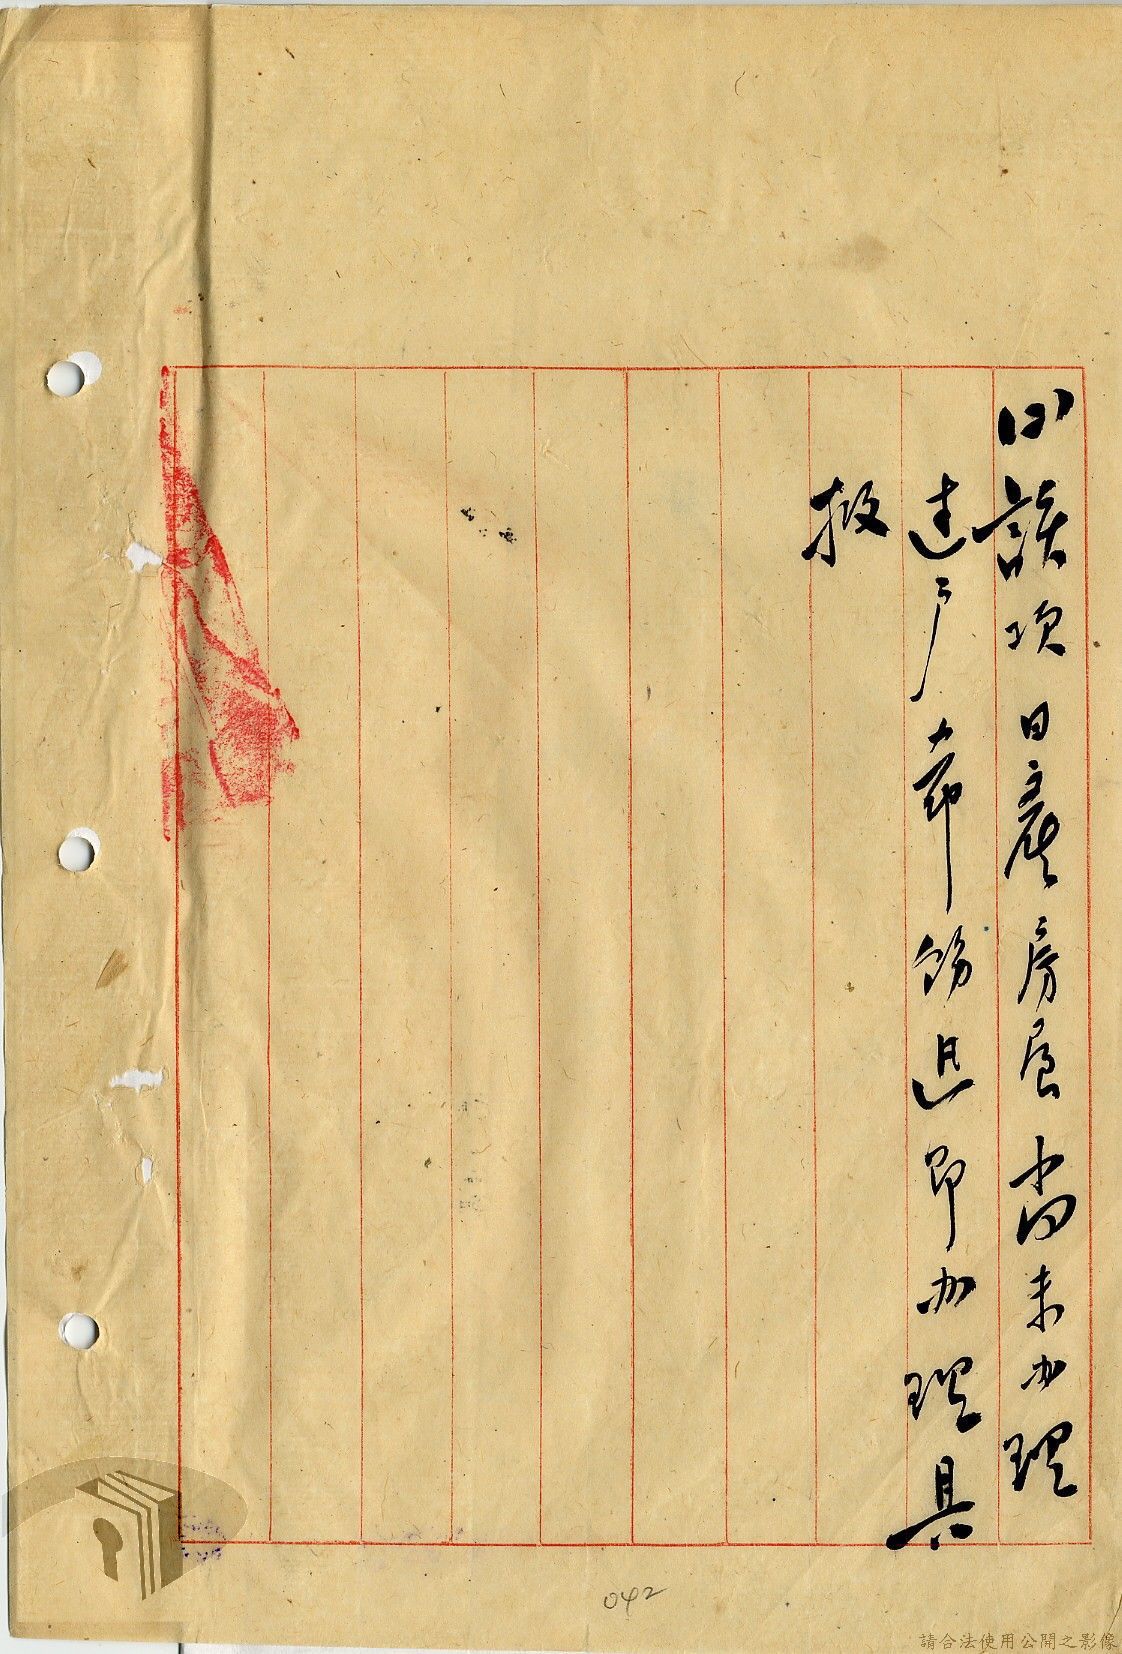 ㈣該項日產房屋尚未办理
達户希飭迅即办理具
报
042
請合法使用公開之影像